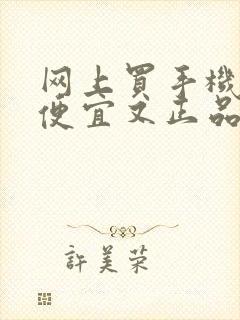 网上買手機
便宜又正品
許美荣